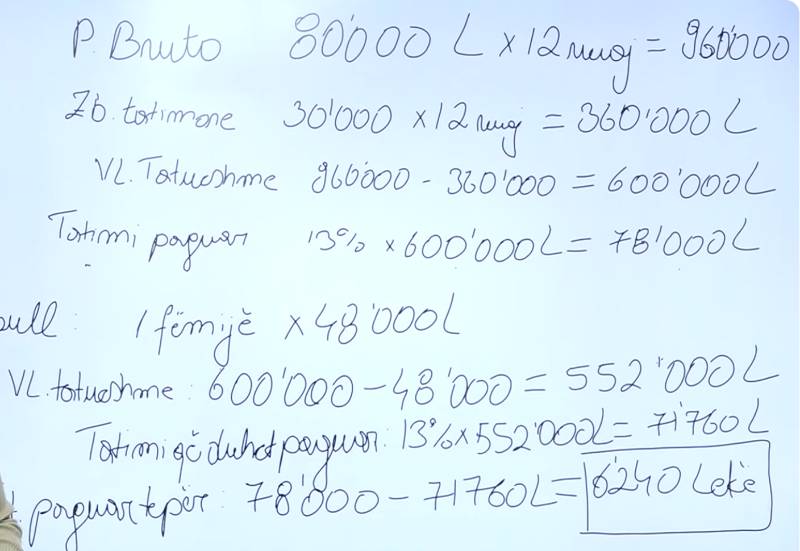 P. Bruto 80'000 L x 12 muaj = 960'000
Zb. tatimore 30'000 x 12 muaj = 360'000 L
VL. Tatueshme 960'000 - 360'000 = 600'000 L
Tatimi paguar 13% x 600'000 L = 78'000 L
1 fëmijë x 48'000 L
VL. tatueshme: 600'000 - 48'000 = 552'000 L
Tatimi që duhet paguar: 13% x 552'000 L = 71'760 L
paguar tepër: 78'000 - 71760 L = 6240 Lekë